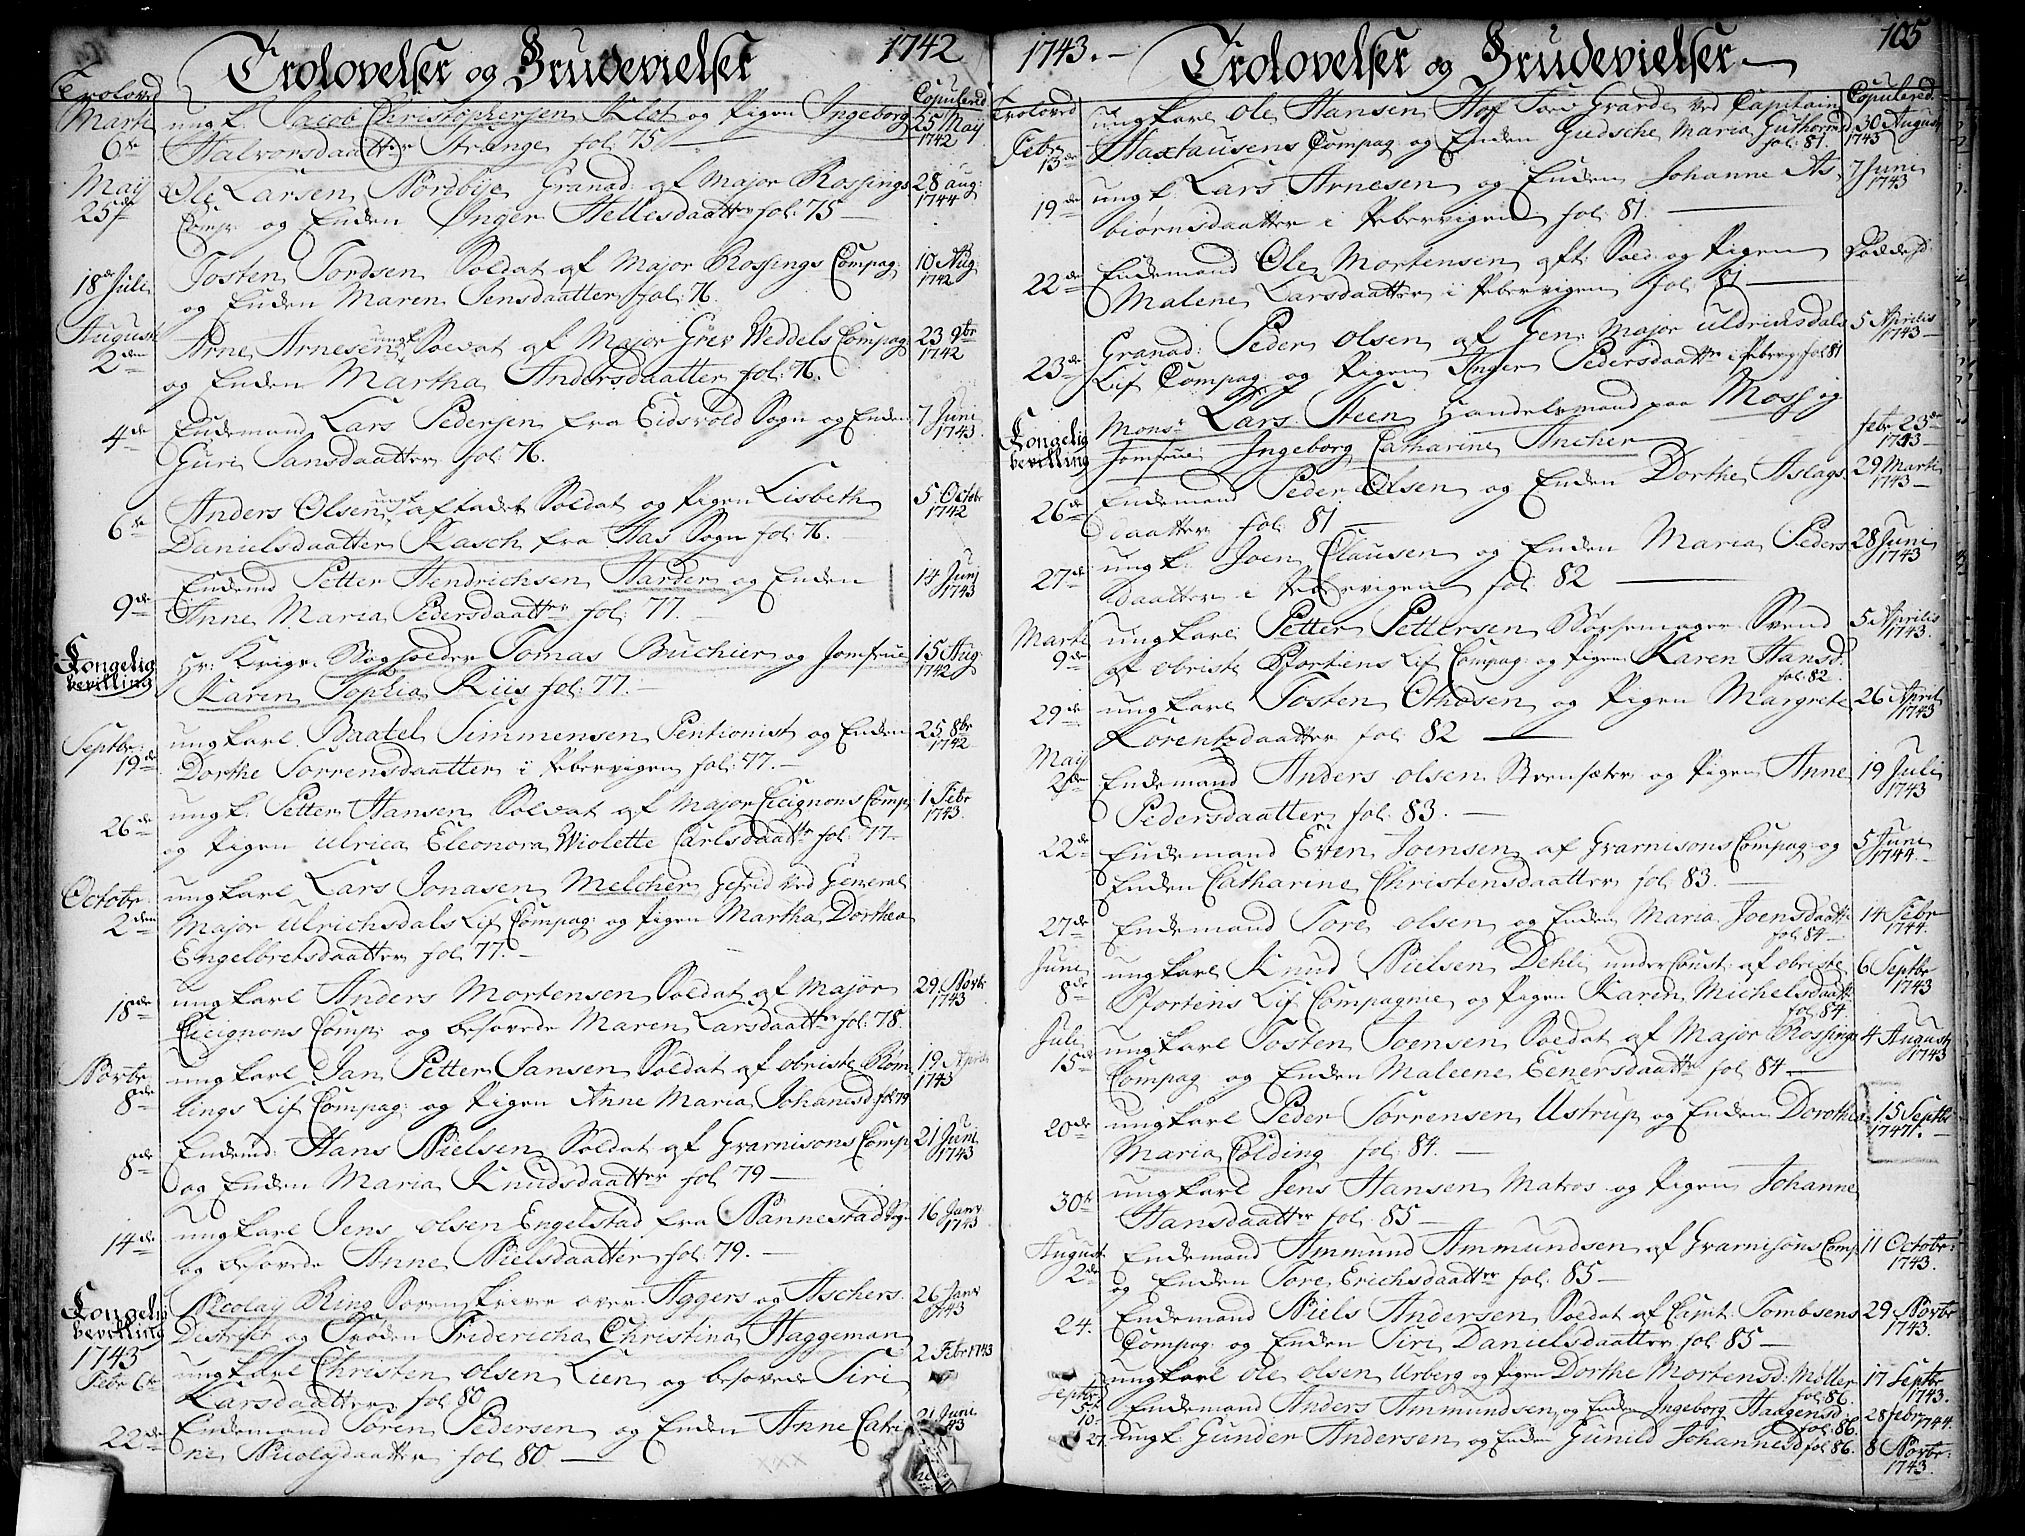 Trolovelser og Brudevielser 1742
Trolovd
Copulered
Marti 6te
ungk. Jacob Christophersen Klet og Pigen Ingeborg
Halvorsdaatter Strange fol. 75
25 Maÿ 1742
Maÿ 25de
Ole Larsen Nordbÿe Granad: af Major Rossings
Comp: og Enken Inger Hellesdaatter fol: 75
28 aug: 1744
18de Juli
Tosten Tordsen Soldat af Major Rossings Compag:
og Enken Maren Jensdaatter fol: 76.
10 Aug: 1742
August 2den
Arne Arnesen ungk. Soldat af Major Grev Weddels Compag:
og Enken Martha Andersdaatter fol: 76.
23 9br 1742
4de
Enkemand Lars Pedersen fra Eidsvold Sogn og Enken
Guri Jansdaatter fol: 76.
7 Juni 1743.
6te
Anders Olsen ungk. aftaket Soldat og Pigen Lisbeth
Danielsdaatter Rasch fra Aas Sogn fol: 76.
5 Octobr 1742
9de
Enkemd Petter Hendrichsen Harder og Enken
Anne Maria Pedersdaatter fol: 77.
14 Junj 1743
Kongelig bevilling
Hr: Krigs Bogholder Tomas Buchier og Jomfrue
Karen Sophia Riis fol: 77.
15 Aug: 1742
Septbr: 19de
ungkarl Baatel Simmensen Pentionist og Enken
Dorthe Sørrensdaatter i Pebervigen fol: 77.
25 8br 1742
26de
ungk. Petter Hansen Soldat af Major Cicignons Comp:
og Pigen Ulrica Eleonora Wiolette Carlsdaatter fol: 77
1 Febr 1743.
Octobr: 2den
ungkarl Lars Jonasen Melcher Gefrid ved General
Major Ulrichsdals Lif Compag: og Pigen Martha Dorthea
Engelbretsdaatter fol 77.
18de
ungkarl Anders Mortensen Soldat af Major
Cicignons Comp: og besovede Maren Larsdaatter fol: 78.
29 Novbr 1743
Novbr 8de
ungkarl Jan Petter Jansen Soldat af obriste Røm
lings Lif Compag: og Pigen Anne Maria Johanesd fol 79
19 Aprilis 1743
8de
Enkemd: Hans Nielsen Soldat af Guarnisons Comp
og Enken Maria Knudsdaatter fol 79
21 Juni 1743
14de
ungkarl Jens olsen Engelstad fra Nannestad Sog.
og besovede Anne Nielsdaatter fol: 79.
16 Janv 1743
Kongelig bevilling
Nicolaÿ Ring Sorenskriver over Aggers og Aschers
Distrikt og Frøken Fridericha Christina Haggeman
26 Janv 1743
1743 Febr 6te
ungkarl Christen olsen Lien og besovede Siri
Larsdaatter fol 80
2 Febr 1743
22de
Enkemand Søren Pedersen og Enken Anne Catri
ne Nicolaÿdaatter fol 80
21 Juni 43
1743. Trolovelser og Brudevielser 105
Trolovd
Copulered
Febr 13de
ungkarl Ole Hansen Hof Tow Garde ved Capitain
Haxthausens Compag og Enken Gudsche Maria Guthormsd fol: 81.
30 August 1743
19de
ungk. Lars Arnesen og Enken Johanne As
biørnsdaatter i Pebervigen fol: 81.
7 Juni 1743
22de
Enkemand Ole Mortensen aft: Sold: og Pigen
Malene Larsdaatter i Pebervigen fol: 81
23de
Granad: Peder olsen af Gen: Major Uldrichsdals
Lif Compag: og Pigen Inger Pedersdaatter i Pebervig: fol 81
5 Aprilis 1743
Kongelig bevilling
Monsr Lars Steen Handelsmand paa Moss og
Jomfrue Ingeborg Catharine Ancher
febr 23de 1743
26de
Enkemand Peder Olsen og Enken Dorthe Aslags
daatter fol: 81
29 Marti 1743
27de
ungk: Joen Clausen og Enken Maria Peders
daatter i Pebervigen fol: 82
28 Juni 1743
Marti 9de
ungkarl Petter Pettersen Børsemager Svend
af obriste Stortiens Lif Compag: og Pigen Karen Hansd. fol. 82
5 Aprilis 1743.
29de
ungkarl Tosten Othosen og Pigen Margrete
Lorentzdaatter fol: 82
26 April 1743
Maÿ 2den
Enkemand Anders olsen Steensæter og Pigen Anne
Pedersdaatter fol: 83.
19 Juli 1743
22de
Enkemand Even Joensen af Guarnisons Compag: og
Enken Catharine Christensdaatter fol: 83.
5 Juni 1744.
27de
Enkemand Tore olsen og Enken Maria Joensdaatter fol: 84
14 Febr 1744.
Juni 8de
ungkarl Knud Nielsen Dehli under Const: af obriste
Stortens Lif Compagnie og Pigen Karen Michelsdaatter fol. 84.
6 Septbr 1743
Juli 15de
ungkarl Tosten Joensen Soldat af Major Rossings
Compag og Enken Maleene Eenersdaatter fol 84
4 August 1743
20de
ungkarl Peder Sørrensen Ustrup og Enken Dorothea
Maria Colding fol: 84.
15 Septbr 1747.
30te
ungkarl Jens Hansen Matros og Pigen Johanne
Hansdaatter fol: 85
August: 2de
Enkemand Ammund Ammundsen af Guarnisons Comp:
og Enken Tore Erichsdaatter fol: 85
11 Octobr: 1743.
24.
Enkemand Niels Andersen Soldat af Capit: Tombsens
Compag: og Enken Siri Danielsdaatter fol: 85
29 Novbr 1743.
Septbr 5te
ungkarl Ole olsen Urberg og Pigen Dorthe Mortensd: Møller fol: 86.
17 Septbr 1743.
10
Enkemand Anders Ammundsen og Enken Ingeborg Haagensd. fol: 86.
28 febr 1744.
27
ungk: Gunder Andersen og Enken Gunild Johannesd fol 86.
8 Novbr: 1743.